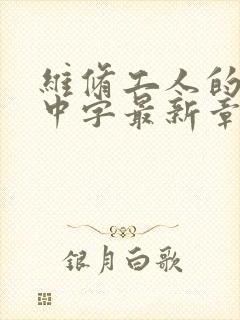 維修工人的
中字最新章
银月白歌